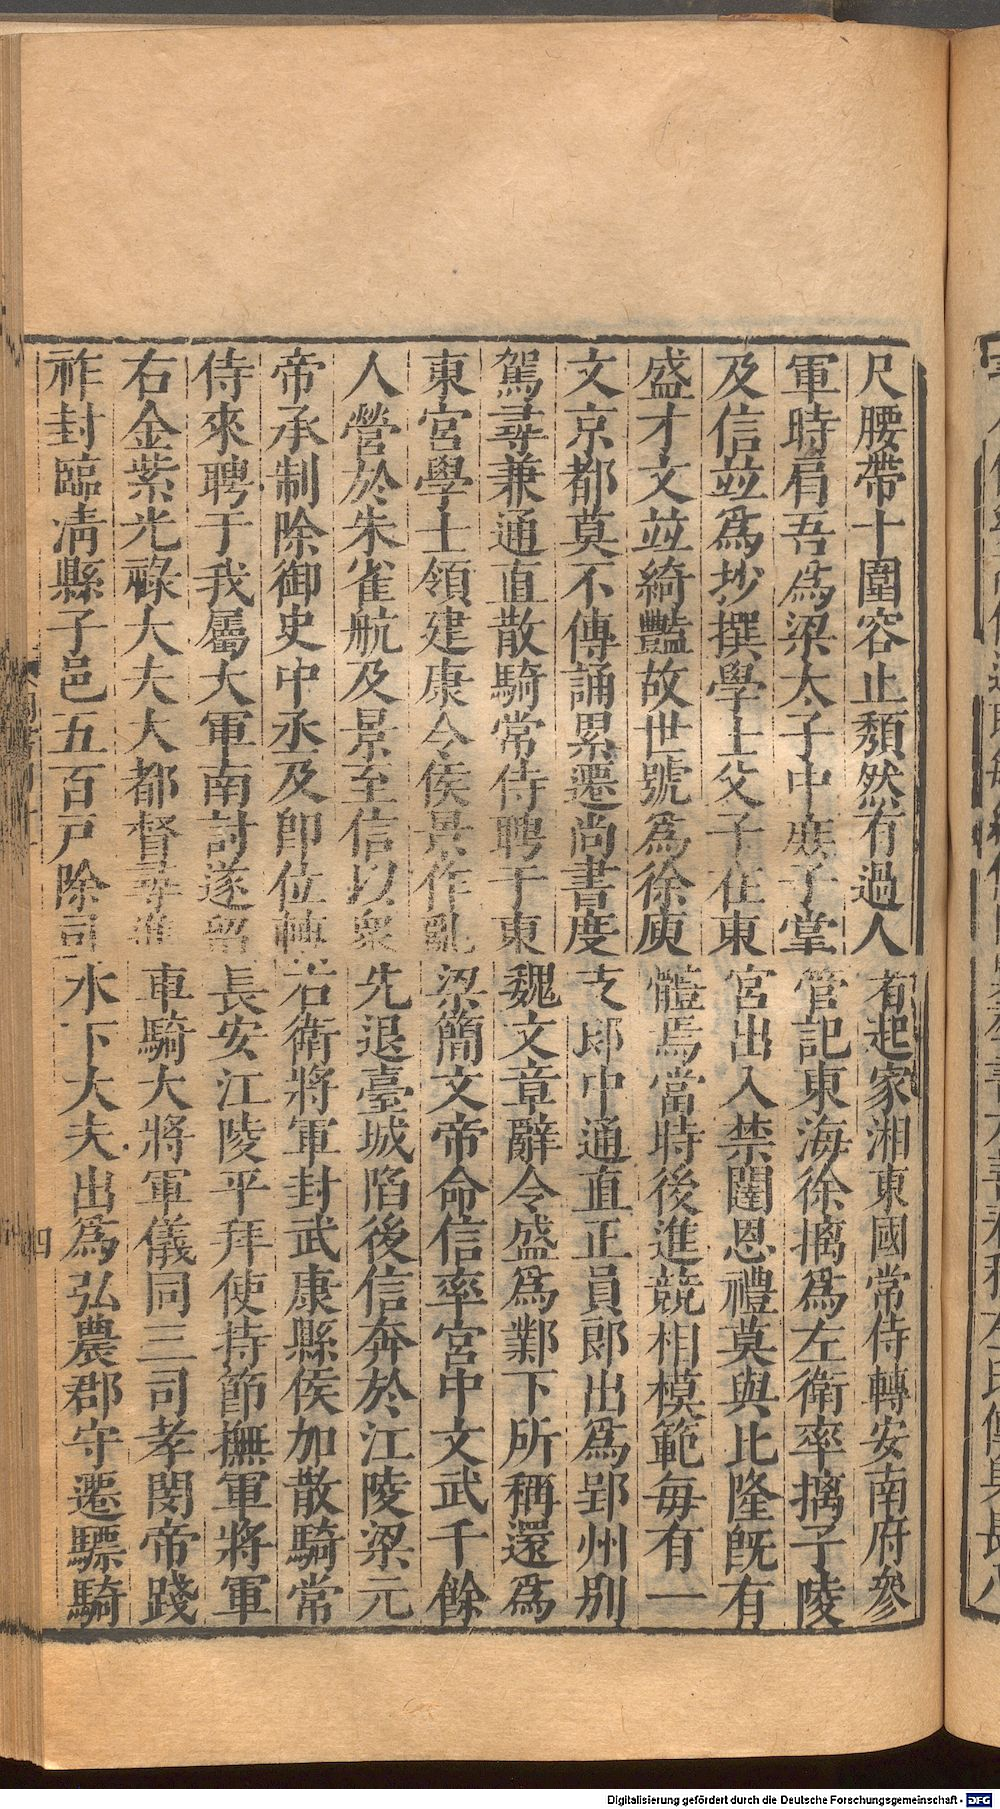 尺腰帶十圍容止頹然有過人者起家湘東國常侍轉安南府參
軍時肩吾爲梁太子中庶子掌管記東海徐摛爲左衛率摛子陵
及信並爲抄撰學士父子在東宮出入禁闥恩禮莫與比隆旣有
盛才文並綺豔故世號爲徐庾體焉當時後進競相模範每有一
文京都莫不傳誦累遷尚書度支郎中通直正員郎出爲郢州別
駕尋兼通直散騎常侍聘于東魏文章辭令盛爲鄴下所稱還爲
東宮學士領建康令侯景作亂梁簡文帝命信率宮中文武千餘
人營於朱雀航及景至信以衆先退臺城陷後信奔於江陵梁元
帝承制除御史中丞及即位轉右衛將軍封武康縣侯加散騎常
侍來聘于我屬大軍南討遂留長安江陵平拜使持節撫軍將軍
右金紫光祿大夫大都督尋進車騎大將軍儀同三司孝閔帝踐
祚封臨淸縣子邑五百戸除司水下大夫出爲弘農郡守遷驃騎
四
Digitalisierung gefördert durch die Deutsche Forschungsgemeinschaft - DFG